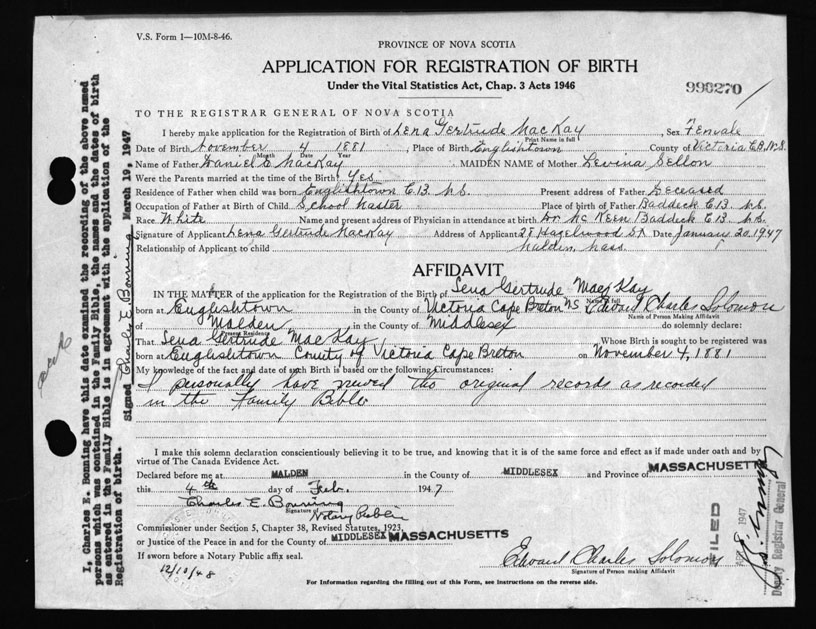 V.S. Form 1—10M-8-46.
PROVINCE OF NOVA SCOTIA
APPLICATION FOR REGISTRATION OF BIRTH
Under the Vital Statistics Act, Chap. 3 Acts 1946
990270
TO THE REGISTRAR GENERAL OF NOVA SCOTIA
I hereby make application for the Registration of Birth of Lena Gertrude MacKay, Sex Female
Print Name in full
Date of Birth November 4 1881, Place of Birth Englishtown County of Victoria C.B. N.S.
Month Date Year
Name of Father Daniel MacKay, MAIDEN NAME of Mother Levina Sellon
Were the Parents married at the time of the Birth? Yes
Residence of Father when child was born Englishtown C.B. N.S. Present address of Father Deceased
Occupation of Father at Birth of Child School Master Place of birth of Father Baddeck C.B. N.S.
Race White Name and present address of Physician in attendance at birth Dr Mc Keen Baddeck C.B. N.S.
Signature of Applicant Lena Gertrude MacKay Address of Applicant 28 Hazelwood St Date January 20, 1947
Relationship of Applicant to child Malden, Mass.
AFFIDAVIT
IN THE MATTER of the application for the Registration of the Birth of Lena Gertrude MacKay
Name in full
born at Englishtown in the County of Victoria Cape Breton NS Edward Charles Solomon
Name of Person Making Affidavit
of Malden in the County of Middlesex do solemnly declare:
Present Residence
That Lena Gertrude MacKay Whose Birth is sought to be registered was
born at Englishtown County of Victoria Cape Breton on November 4, 1881
My knowledge of the fact and date of such Birth is based on the following Circumstances:
I personally have viewed the original records as recorded
in the Family Bible
I make this solemn declaration conscientiously believing it to be true, and knowing that it is of the same force and effect as if made under oath and by
virtue of The Canada Evidence Act.
Declared before me at MALDEN in the County of MIDDLESEX and Province of MASSACHUSETTS
this 4th day of Feb. 1947
Charles E. Bonning
Signature of Notary Public
Commissioner under Section 5, Chapter 38, Revised Statutes, 1923,
or Justice of the Peace in and for the County of MIDDLESEX MASSACHUSETTS
If sworn before a Notary Public affix seal.
12/10/48
Edward Charles Solomon
Signature of Person making Affidavit
For Information regarding the filling out of this Form, see instructions on the reverse side.
I, Charles E. Bonning have this date examined the recording of the above named
person which was contained in the Family Bible, the names and the dates of birth
as entered in the Family Bible is in agreement with the application of the
Registration of birth.
Signed Charles E. Bonning March 19, 1947
FILED
1947
Deputy Registrar General